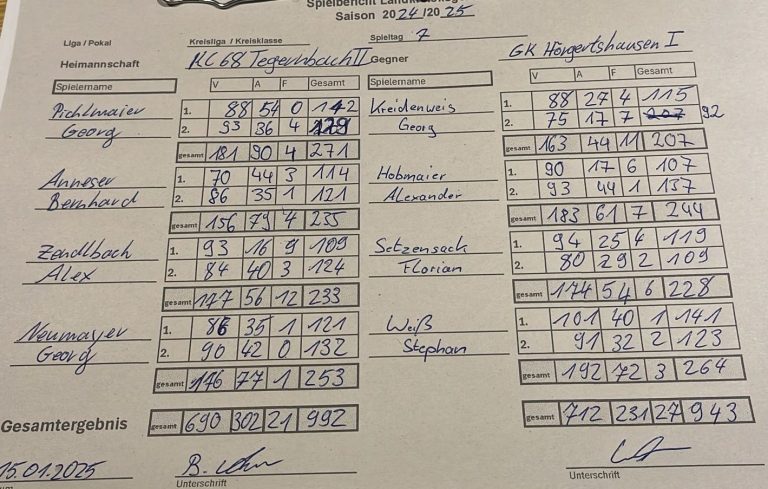 Spielbericht Landkreis
Saison 2024/2025
Liga / Pokal Kreisliga / Kreisklasse Spieltag 7
Heimannschaft KC68 Tegernbach II Gegner GK Hörgertshausen I
Spielername V A F Gesamt Spielername V A F Gesamt
Pichlmaier 1. 88 54 0 142 Kreidenweis 1. 88 27 4 115
Georg 2. 93 36 4 129 Georg 2. 75 17 7 207 92
gesamt 181 90 4 271 gesamt 163 44 11 207
Anneser 1. 70 44 3 114 Hobmaier 1. 90 17 6 107
Bernhard 2. 86 35 1 121 Alexander 2. 93 44 1 137
gesamt 156 79 4 235 gesamt 183 61 7 244
Zendlbach 1. 93 16 9 109 Setzensack 1. 94 25 4 119
Alex 2. 84 40 3 124 Florian 2. 80 29 2 109
gesamt 177 56 12 233 gesamt 174 54 6 228
Neumayer 1. 86 35 1 121 Weiß 1. 101 40 1 141
Georg 2. 90 42 0 132 Stephan 2. 91 32 2 123
gesamt 176 77 1 253 gesamt 192 72 3 264
Gesamtergebnis gesamt 690 302 21 992 gesamt 712 231 27 943
15.01.2025 B.
Unterschrift Unterschrift